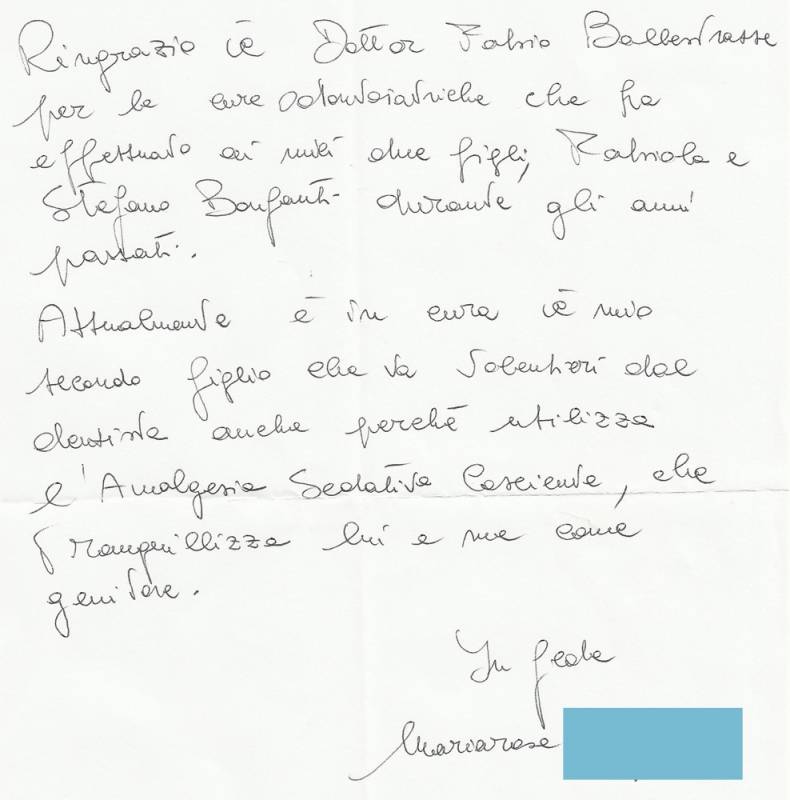 Ringrazio il Dottor Fabio Ballestrasse
per le cure odontoiatriche che ha
effettuato ai miei due figli, Fabiola e
Stefano Bonfanti durante gli anni
passati.
Attualmente è in cura il mio
secondo figlio che va volentieri dal
dentista anche perchè utilizza
l'Analgesia Sedativa Cosciente, che
tranquillizza lui e me come
genitore.
In fede
Mariarosa